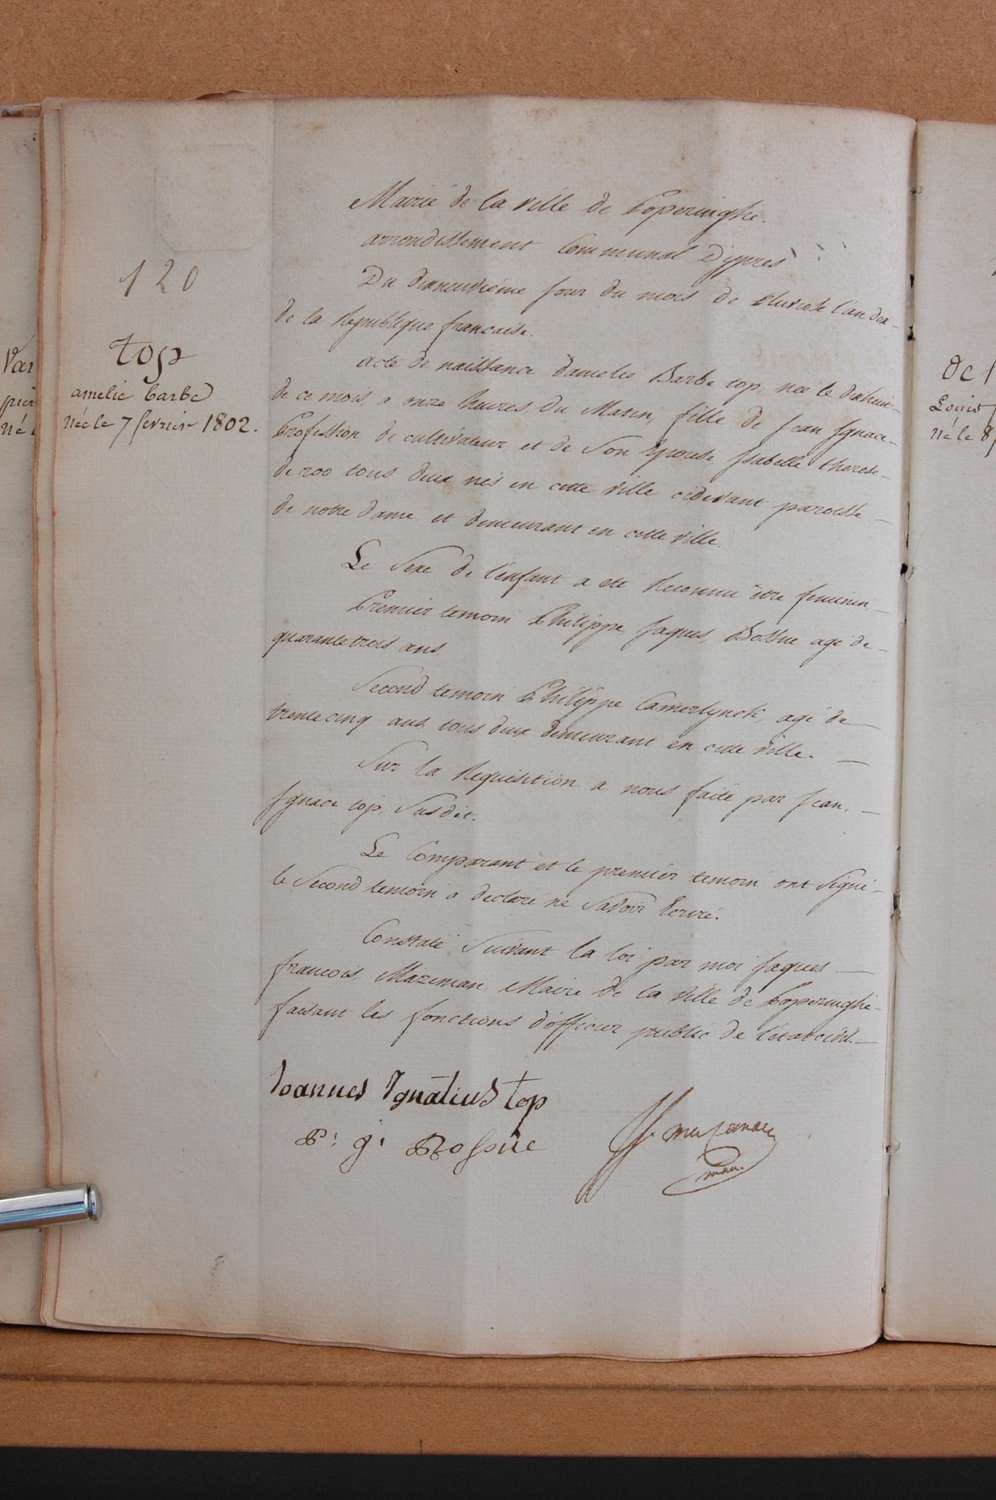 120
top
amelie barbe
née le 7 fevrier 1802.
Mairie de la ville de Poperinghe.
arrondissement Communal d'ypres
Du dixneuvieme jour du mois de pluviose l'an dix
de la Republique francaise.
acte de naissance d'amelie Barbe top née le dixhuit
de ce mois a onze heures du Matin, fille de jean Ignace
Profession de cultivateur et de Son Epouse Isabelle therese
de roo tous deux nés en cette ville cidevant paroisse
de notre dame et demeurant en cette ville.
Le Sexe de l'enfant a eté Reconnu être feminin
Premier temoin Philippe Jaques agé de
quarante trois ans
Second temoin Philippe Camerlynck, agé de
trente cinq ans tous deux demeurant en cette ville.
Sur la Requisition a nous faite par jean
Ignace top Susdit.
Le Comparant et le premier temoin ont Signé
le Second temoin a declaré ne Savoir Ecrire.
Constaté Suivant la loi par moi Jaques
francois Mazeman Maire de la ville de Poperinghe
faisant les fonctions d'officier public de l'etat civil.
Ioannes Ignatius top
P: j:
Var
né
de
Louis
né le 8